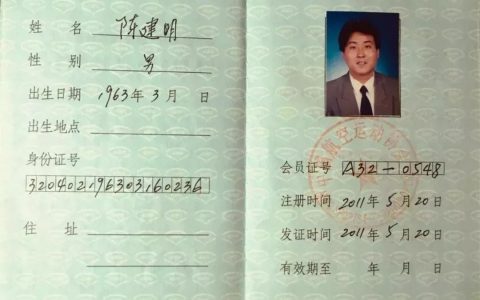 姓 名 陈建明
性 别 男
出生日期 1963 年 3 月 日
出生地点
身份证号
320402196303160236
住 址
航空运动协会
会员证号 A32-0548
注册时间 2011 年 5 月 20 日
发证时间 2011 年 5 月 20 日
有效期至 年 月 日